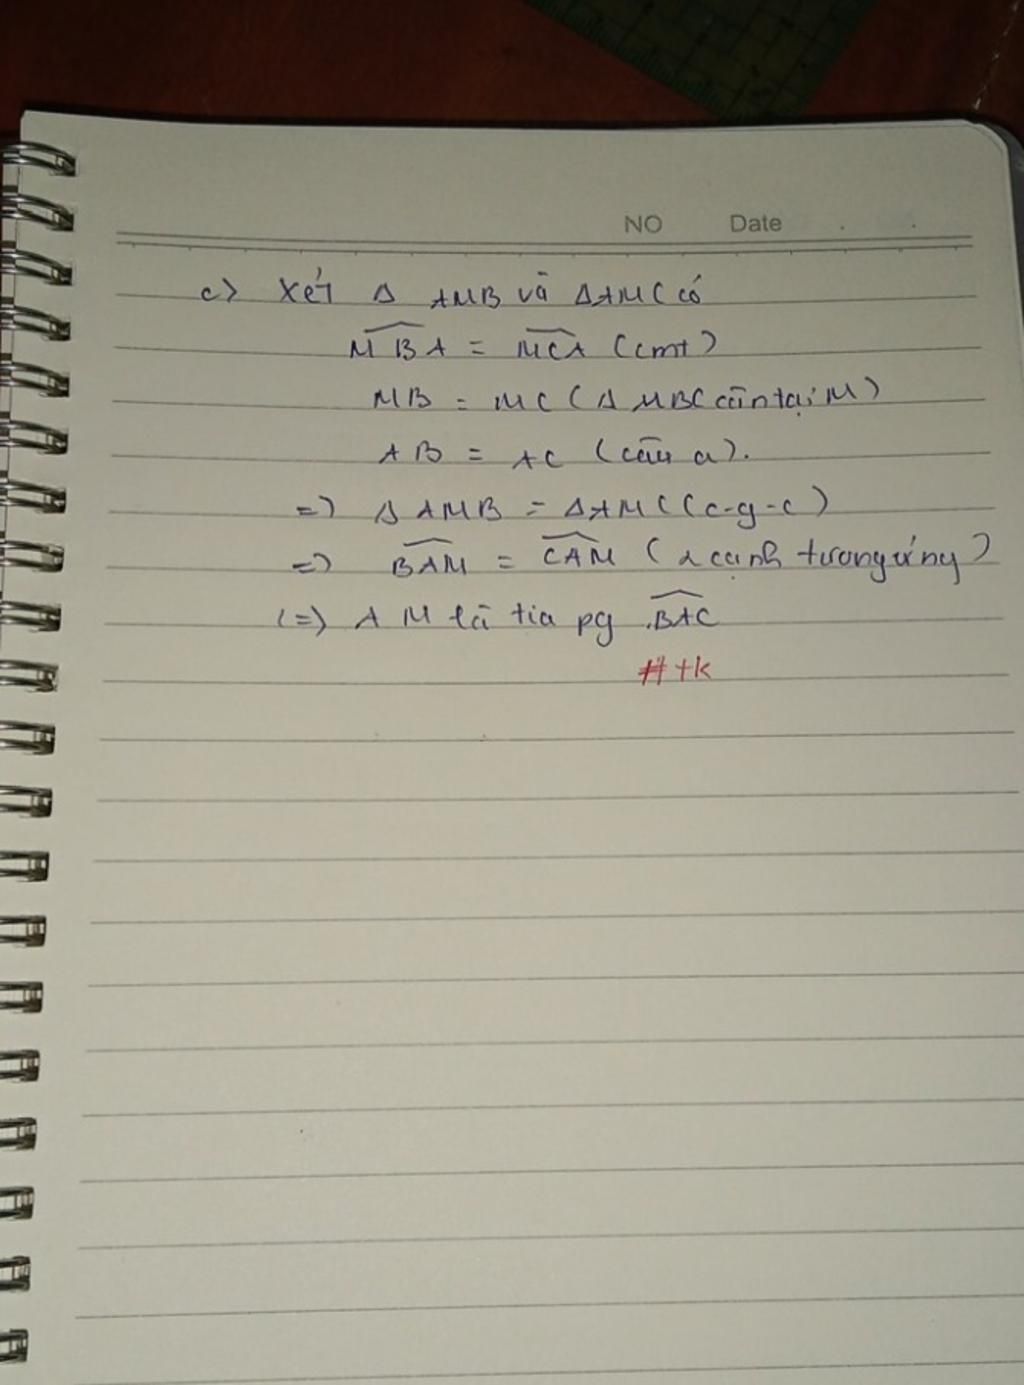 NO Date
c) Xét Δ AMB và ΔAMC có
MBA = MCA (cmt)
MB = MC (Δ MBC cân tại M)
AB = AC (câu a).
=) Δ AMB = ΔAMC (c-g-c)
=) BAM = CAM (2 cạnh tương ứng)
(=) AM là tia pg BAC
# tk